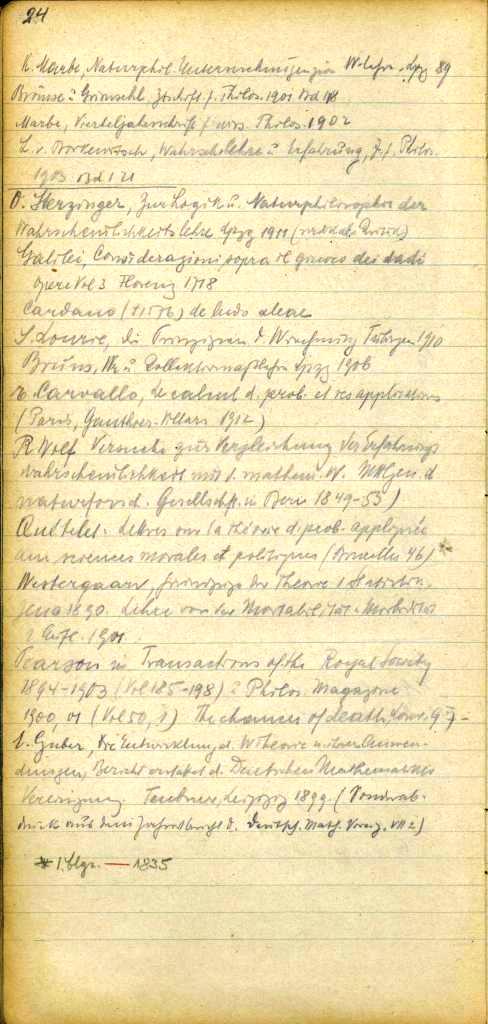 24
K. Marbe, Naturphil. Untersuchungen zur W-lehre. Lpzg 89
Brömse u. Grimsehl, Ztschrft. f. Philos. 1901 Bd 118
Marbe, Vierteljahrschrift f. wiss. Philos. 1902
L. v. Bortkewitsch, Wahrschlehre u. Erfahrung, Z. f. Philos.
1903 Bd 121
O. Sterzinger, Zur Logik u. Naturphilosophie der
Wahrscheinlichkeitslehre Lpzg 1911
Galilei, Considerazioni sopra il giuoco dei dadi
Opere Vol 3 Florenz 1718
Cardano (†1576) de ludo aleae
S. Lourie, die Prinzipien d. W'rechnung Tübingen 1910
Bruns, W'r u. Kollektivmaßlehre Lpzg. 1906
E. Carvallo, Le calcul d. prob. et ses applications
(Paris, Gauthier-Villars 1912)
R. Wolf Versuche zur Vergleichung der Erfahrungs
wahrscheinlichkeit mit d. mathem. W. Mttlgen. d
naturforsch. Gesellschft. in Bern 1849-53)
Quetelet: Lettres sur la théorie d. prob. appliquée
aux sciences morales et politiques (Bruxelles 46) *
Westergaard, Grundzüge der Theorie d Statistik.
Jena 1890. Lehre von der Mortalität u Morbidität
2 Aufl. 1901.
Pearson in Transactions of the Royal Society
1894-1903 (Vol 185-198) u Philos. Magazine
1900, 01 (Vol 50, 1) The chances of death, Lond. 97 -
E. Czuber, Die Entwicklung d. W'theorie u. ihrer Anwen-
dungen, Bericht erstattet d. Deutschen Mathematiker
Vereinigung. Teubner, Leipzig 1899 (Sonderab-
druck aus dem Jahresbericht d. Deutsch. Math. Verein. VII 2)
* 1. — 1835